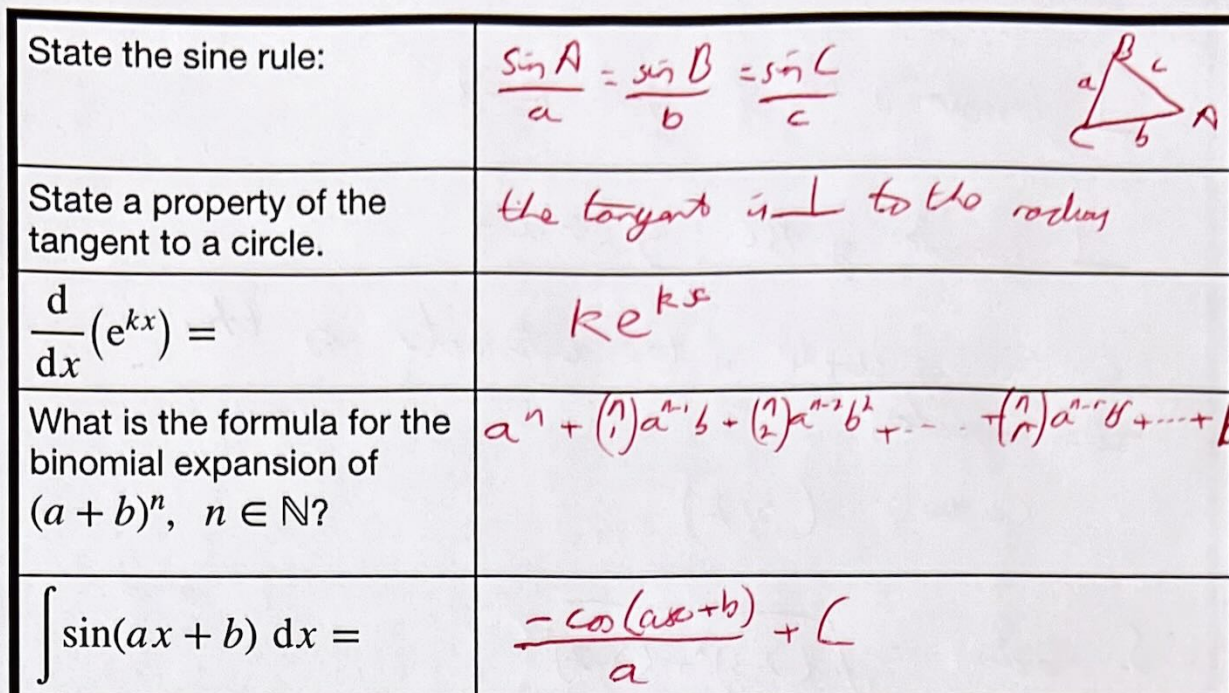 State the sine rule:
sin A / a = sin B / b = sin C / c
B
a c
C b A
State a property of the
tangent to a circle.
the tangent is ⊥ to the radius
d/dx (e^{kx}) =
ke^{kx}
What is the formula for the
binomial expansion of
(a + b)^n, n ∈ ℕ?
a^n + (n 1)a^{n-1}b + (n 2)a^{n-2}b^2 + ... +(n r)a^{n-r}b^r + ... +
∫ sin(ax + b) dx =
-cos(ax+b) / a + C